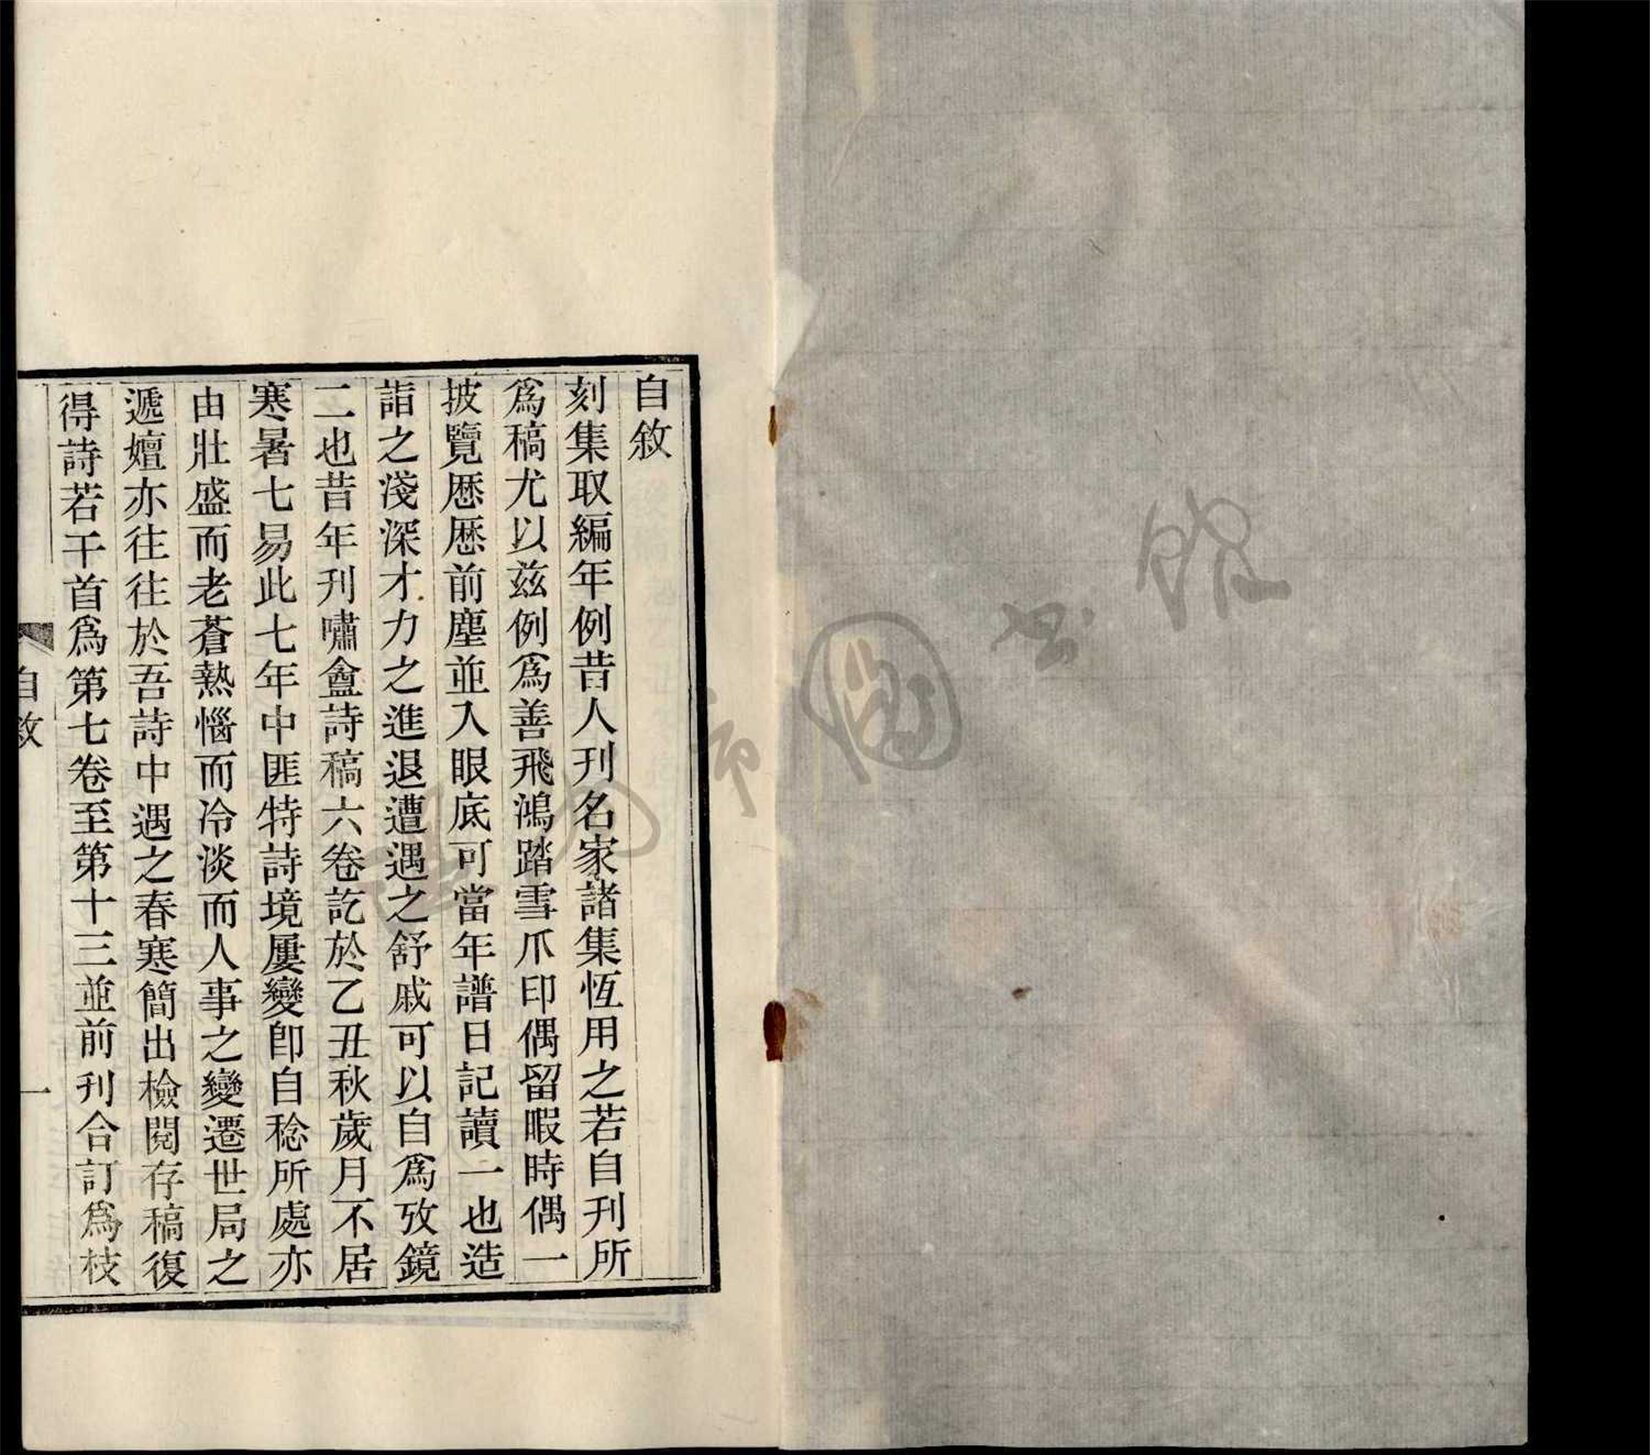 自敘
刻集取編年例昔人刊名家諸集恆用之若自刊所
爲稿尤以茲例爲善飛鴻踏雪爪印偶留暇時偶一
披覽歷歷前塵並入眼底可當年譜日記讀一也造
詣之淺深才力之進退遭遇之舒戚可以自爲攷鏡
二也昔年刊嘯盦詩稿六卷訖於乙丑秋歲月不居
寒暑七易此七年中匪特詩境屢變卽自稔所處亦
由壯盛而老蒼熱惱而冷淡而人事之變遷世局之
遞嬗亦往往於吾詩中遇之春寒簡出檢閱存稿復
得詩若干首爲第七卷至第十三並前刊合訂爲枝
自敘
一
圖書館